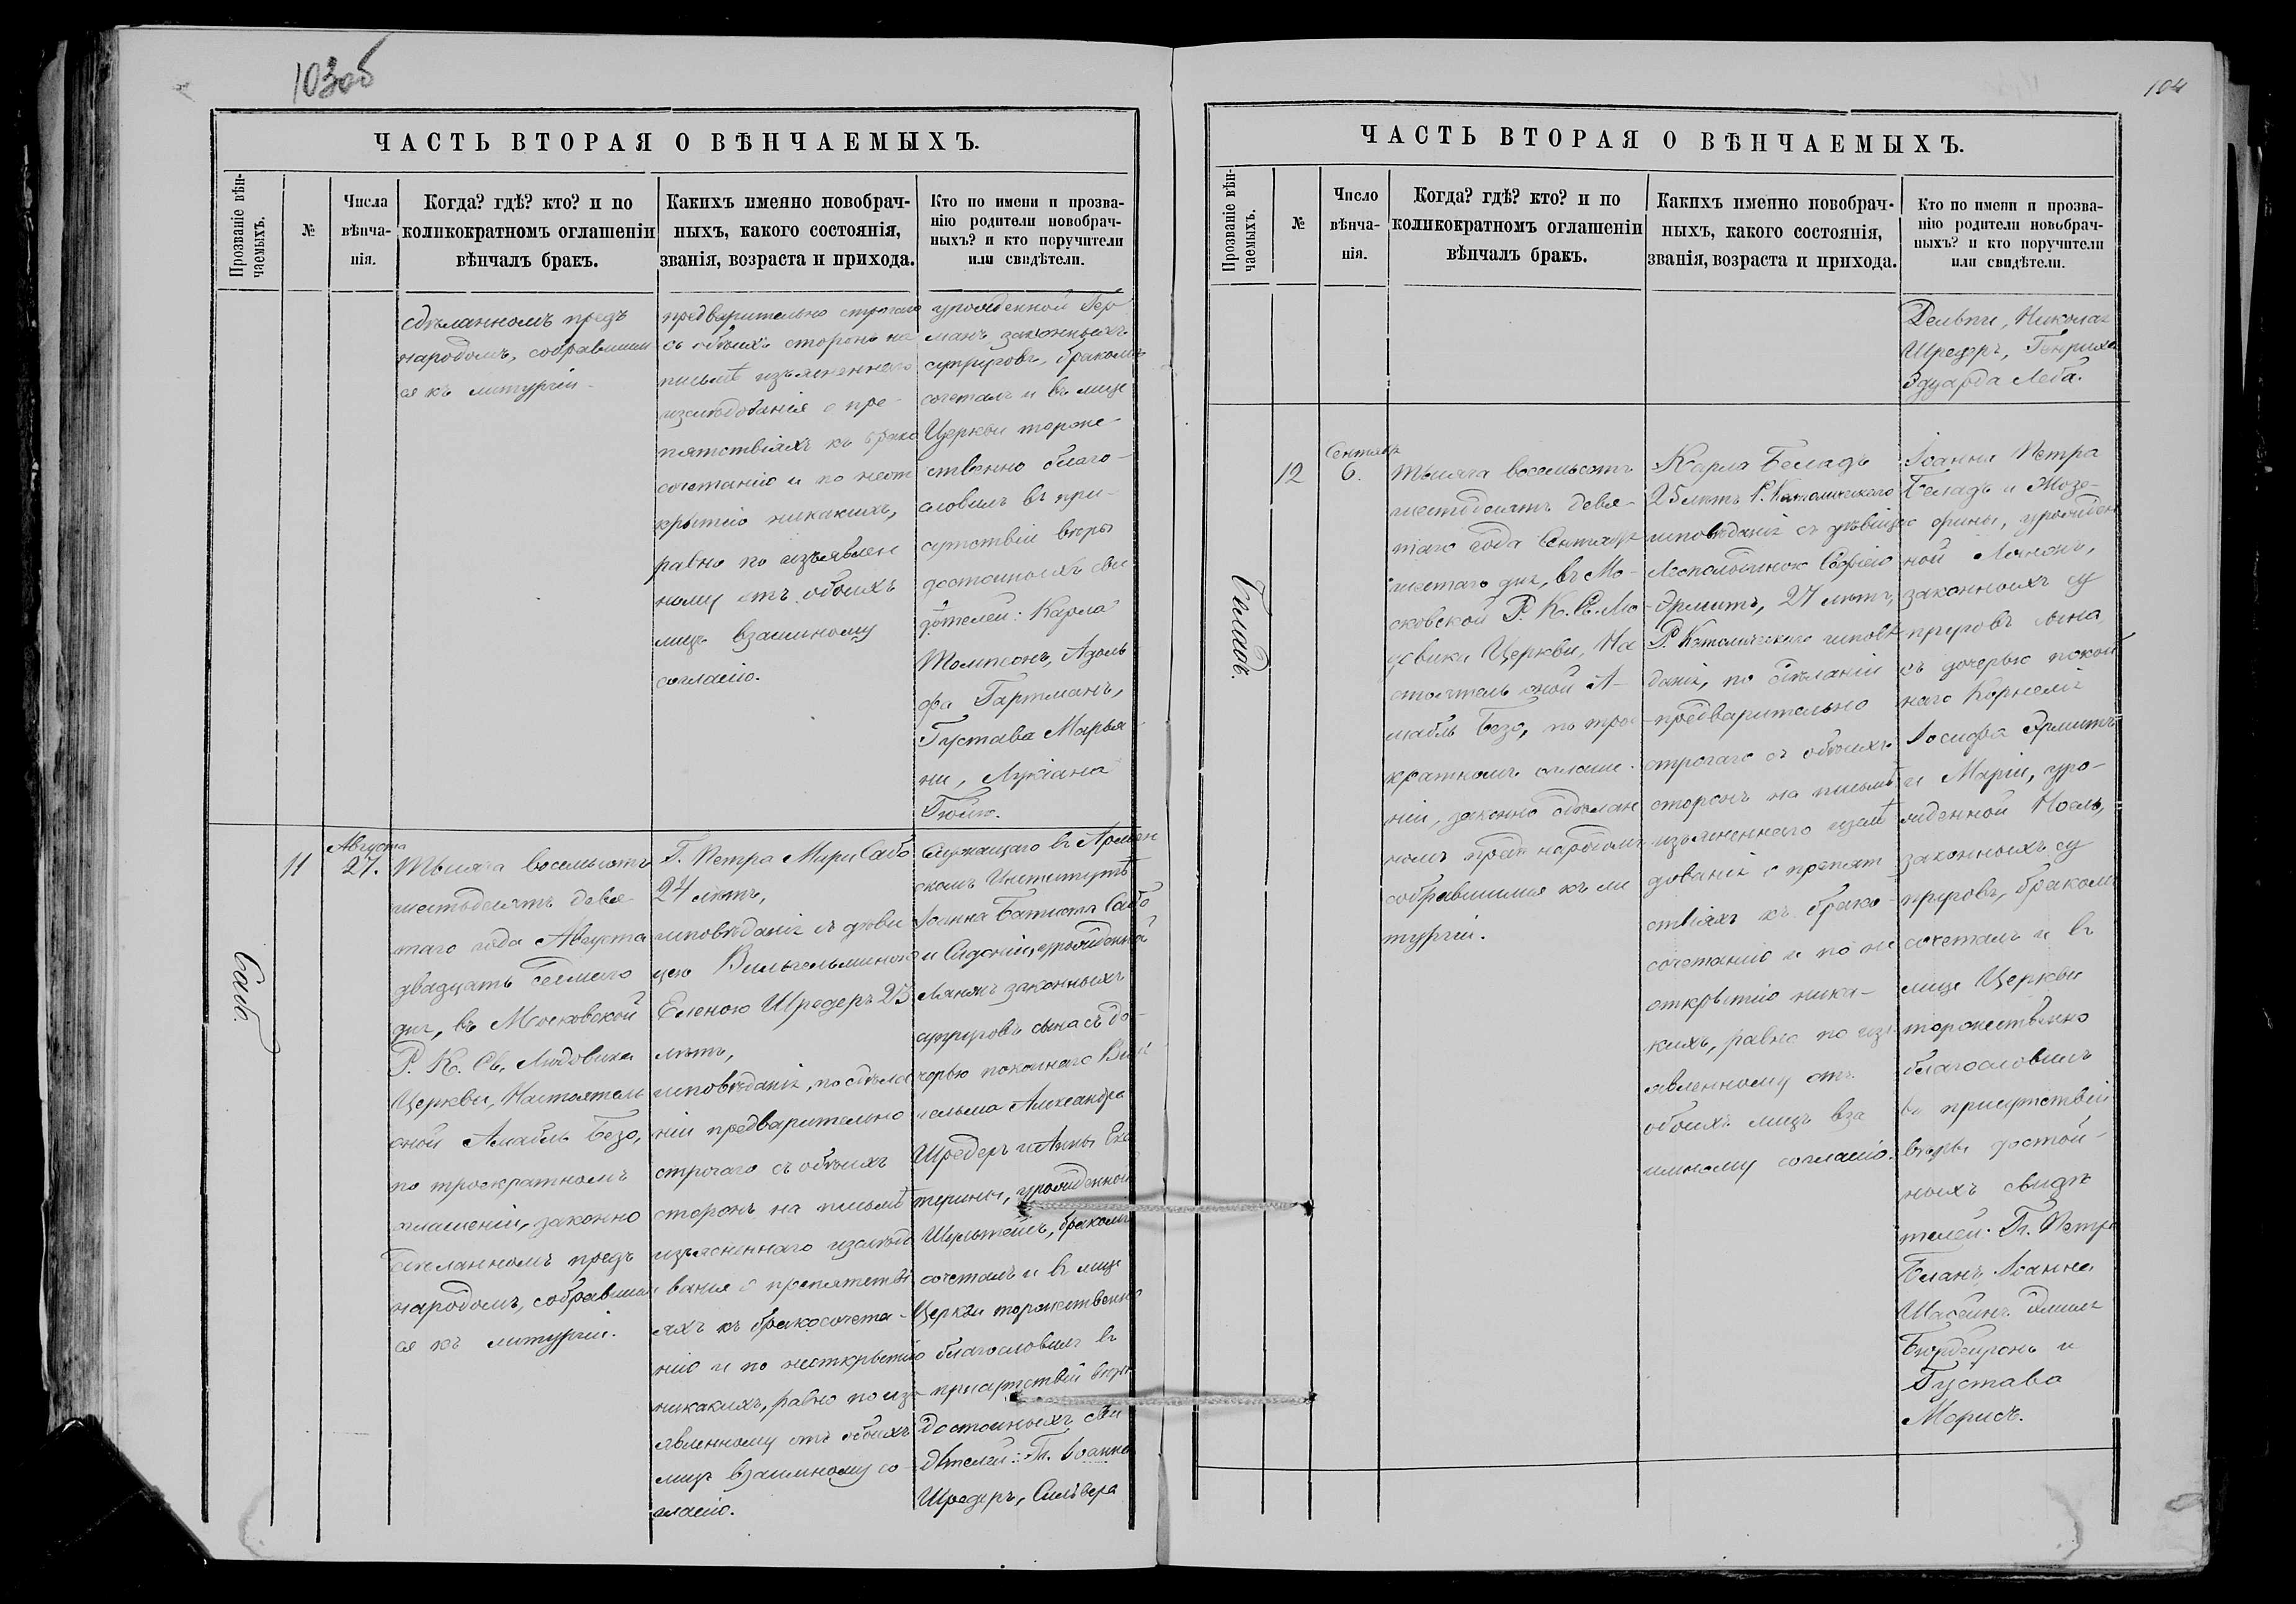 103об
ЧАСТЬ ВТОРАЯ О ВѢНЧАЕМЫХЪ.
Прозваніе вѣн-
чаемыхъ.
№
Числа
вѣнча-
нія.
Когда? гдѣ? кто? и по
коликократномъ оглашеніи
вѣнчалъ бракъ.
Какихъ именно новобрач-
ныхъ, какого состоянія,
званія, возраста и прихода.
Кто по имени и прозва-
нію родители новобрач-
ныхъ? и кто поручители
или свидѣтели.
сдѣланномъ предъ
народомъ, собравшим
ся къ литургіи.
предварительно строгаго
съ обѣихъ сторонъ на
письмѣ изъясненнаго
изслѣдованія о пре-
пятствіяхъ къ брако
сочетанію и по неот
крытію никакихъ,
равно по изъявлен
ному отъ обоихъ
лицъ взаимному
согласію.
урожденной Гер
манъ законныхъ
супруговъ, бракомъ
сочеталъ и въ лице
Церкви торже-
ственно благо-
словилъ въ при-
сутствіи вѣры
достойныхъ сви
дѣтелей: Карла
Томпсонъ, Адоль
фа Гартманъ,
Густава Марья
ни, Лукіана
Гюйю.
Сабо.
11
Августа
27.
Тысяча восемьсотъ
шестьдесятъ девя-
таго года Августа
двадцать седмаго
дня, въ Московской
Р. К. Св. Людовика
Церкви, Настоятель
оной Амабль Безо,
по троекратномъ
оглашеніи, законно
сдѣланномъ предъ
народомъ, собравшим
ся къ литургіи.
Г. Петра Мари Сабо
24 лѣтъ,
исповѣданія съ дѣви
цею Вильгельминою
Еленою Шредеръ 23
лѣтъ,
исповѣданія, по сдѣла
ніи предварительно
строгаго съ обѣихъ
сторонъ на письмѣ
изъясненнаго изслѣдо
ванія о препятстві
яхъ къ бракосочета-
нію и по неоткрытію
никакихъ, равно по изъ
явленному отъ обоихъ
лицъ взаимному со-
гласію.
Служащаго въ Армян
скомъ Институтѣ
Іоанна Батиста Сабо
и Сидоніи, урожденной
законныхъ
супруговъ сына съ до-
черью покойнаго Виль
гельма Александра
Шредеръ и Анны Ека
терины, урожденной
бракомъ
сочеталъ и въ лице
Церкви торжественно
благословилъ въ
присутствіи вѣры
достойныхъ сви
дѣтелей: Гг. Іоанна
Шредеръ, Сильвера
104
ЧАСТЬ ВТОРАЯ О ВѢНЧАЕМЫХЪ.
Прозваніе вѣн-
чаемыхъ.
№
Число
вѣнча-
нія.
Когда? гдѣ? кто? и по
коликократномъ оглашеніи
вѣнчалъ бракъ.
Какихъ именно новобрач-
ныхъ, какого состоянія,
званія, возраста и прихода.
Кто по имени и прозва-
нію родители новобрач-
ныхъ? и кто поручители
или свидѣтели.
Николая
Шредеръ, Генриха
Эдуарда Леба.
Беладъ.
12
Сентября
6.
Тысяча восемьсотъ
шестьдесятъ девя-
таго года Сентября
шестаго дня, въ Мо-
сковской Р. К. Св. Лю-
довика Церкви, На
стоятель оной А-
мабль Безо, по трое
кратномъ оглаше-
ніи, законно сдѣлан
номъ предъ народомъ
собравшимся къ ли
тургіи.
Карла Беладъ
25 лѣтъ Р. Католическаго
исповѣданія съ дѣвицею
Леопольдиною Софіею
Эрмитъ, 27 лѣтъ,
Р. Католическаго исповѣ
данія, по сдѣланіи
предварительно
строгаго съ обѣихъ
сторонъ на письмѣ
изъясненнаго изслѣ
дованія о препят
ствіяхъ къ брако-
сочетанію и по не
открытію ника-
кихъ, равно по изъ-
явленному отъ
обоихъ лицъ вза
имному согласію.
Іоанна Петра
Беладъ и Жозе-
фины, урожден
ной
законныхъ су
пруговъ сына,
съ дочерью покой
наго Корнелія
Іосифа Эрмитъ
и Маріи, уро-
жденной Ноель,
законныхъ су
пруговъ, бракомъ
сочеталъ и въ
лице Церкви
торжественно
благословилъ
въ присутствіи
вѣры достой-
ныхъ свидѣ
телей: Гг. Петра
Бланъ, Іоанна
Эмиля
и
Густава
Морисъ.